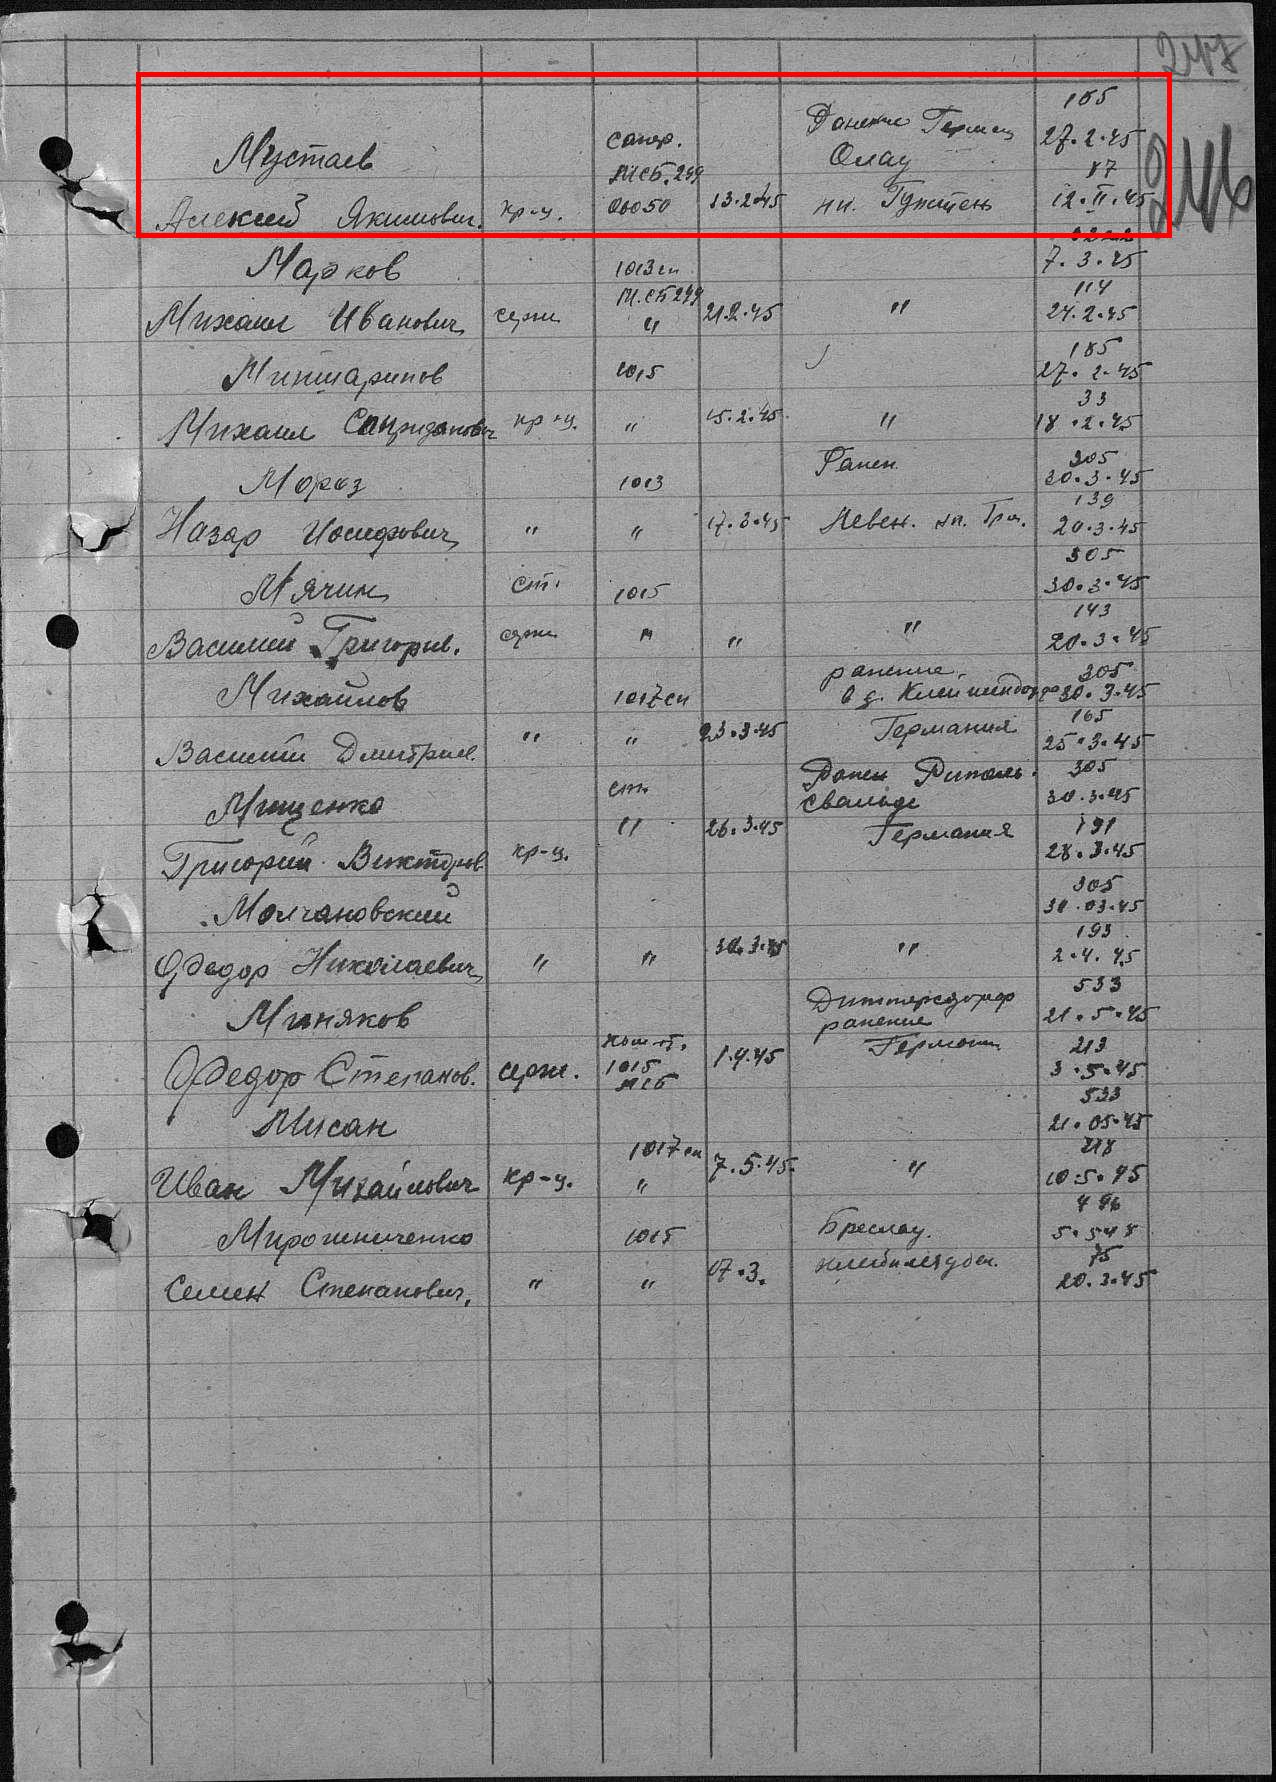 247
246
185
Ранение Герман
сапер.
27.2.45
Мустаев
Олау
МСБ.299
87
Алексей Якимович. кр-ц. 00050 13.2.45 нп. Гунтшен 12.II.45
Марков 1013 сп 7.3.45
МСБ 299 114
Михаил Иванович серж " 21.2.45 " 24.2.45
185
Миншарипов 1015 27.2.45
33
Михаил кр-ц. " 15.2.45 " 18.2.45
Ранен 305
Мороз 1013 30.3.45
139
Назар Иосифович " " 17.3.45 Левен. нп. Гр. 20.3.45
305
Мячин ст. 1015 30.3.45
143
Василий Григорьев. серж " " " 20.3.45
ранение 305
Михайлов 1017 сп в д. 30.3.45
165
Василий Дмитриев. " " 23.3.45 Германия 25.3.45
Ранен 305
Мищенко сп 30.3.45
191
Григорий Викторов кр-ц. " 26.3.45 Германия 28.3.45
305
Молчановский 30.03.45
193
Федор Николаевич " " 30.3.45 " 2.4.45
533
Миняков ранение 21.5.45
213
Федор Степанов. серж. 1015 1.4.45 Германия 3.5.45
МСБ
533
Мисан 21.05.45
1017 сп 218
Иван Михайлович кр-ц. " 7.5.45. " 10.5.45
496
Мирошниченко 1015 Бреслау. 5.5.48
75
Семен Степанович, " " 07.3. 20.3.45